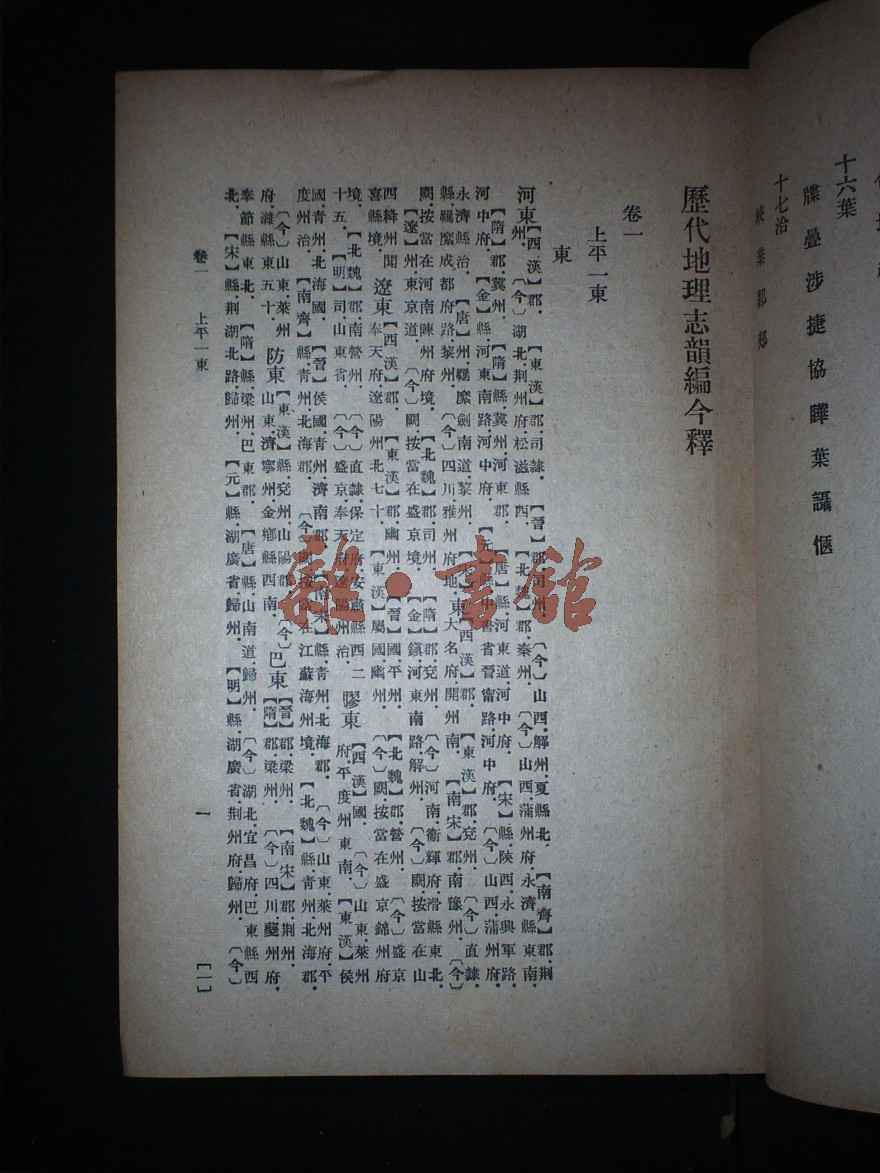 十六葉
牒疊涉捷協曄葉讘愜
十七洽
歷代地理志韻編今釋
卷一
上平一東
東
河東【西漢】郡.【東漢】郡.司隸.【晉】郡.司州.〔今〕山西.解州.夏縣北.【南齊】郡.荊
州.〔今〕湖北.荊州府.松滋縣西.【北魏】郡.秦州.〔今〕山西蒲州府永濟縣東南.
【隋】郡.冀州.【隋】縣.冀州.河東郡.【唐】縣.河東道.河中府.【宋】縣.陝西.永興軍路.
河中府.【金】縣.河東南路.河中府.【元】縣.中書省晉甯路.河中府.〔今〕山西.蒲州府.
永濟縣治.【唐】州.羈縻劍南道.黎州.【宋】
縣.羈縻成都府路.黎州.〔今〕四川雅州府地.
東【西漢】郡.【東漢】郡.兗州.〔今〕直隸.
大名府.開州南.【南宋】郡.南豫州.〔今〕
闕.按當在河南陳州府境.【北魏】郡.司州.【隋】郡.兗州.〔今〕河南.衞輝府.滑縣東北.
【遼】州.東京道.〔今〕闕.按當在盛京境.【金】鎮.河東南路.解州.〔今〕闕.按當在山
西絳州聞
喜縣境.
遼東【西漢】郡.【東漢】郡.幽州.【晉】國.平州.【北魏】郡.營州.〔今〕盛京
奉天府.遼陽州北七十.【東漢】屬國.幽州.〔今〕闕.按當在盛京錦州府
境.【北魏】郡.南營州.〔今〕直隸.保定府.安肅縣西二
十五.【明】司.山東省.〔今〕盛京.奉天府遼陽州治.
膠東【西漢】國.〔今〕山東.萊州
府.平度州東南.【東漢】侯
國.青州.北海國.【晉】侯國.青州.濟南郡.【南宋】縣.青州.北海郡.〔今〕山東.萊州府.平
度州治.【南齊】縣.青州.北海郡.〔今〕闕.按當在江蘇海州境.【北魏】縣.青州.北海郡.
〔今〕山東.萊州
府.濰縣東五十.
防東【東漢】縣.兗州.山陽郡.〔今〕
山東.濟寧州.金鄉縣西南.
巴東【晉】郡.梁州.【南宋】郡.荊州.
【隋】郡.梁州.〔今〕四川.夔州府.
奉節縣東北.【隋】縣.梁州.巴東郡.【唐】縣.山南道.歸州.〔今〕湖北.宜昌府.巴東縣西
北.【宋】縣.荊湖北路歸州.【元】縣.湖廣省歸州.【明】縣.湖廣省.荊州府.歸州.〔今〕
卷一 上平一東 一 [一]
雜·書館